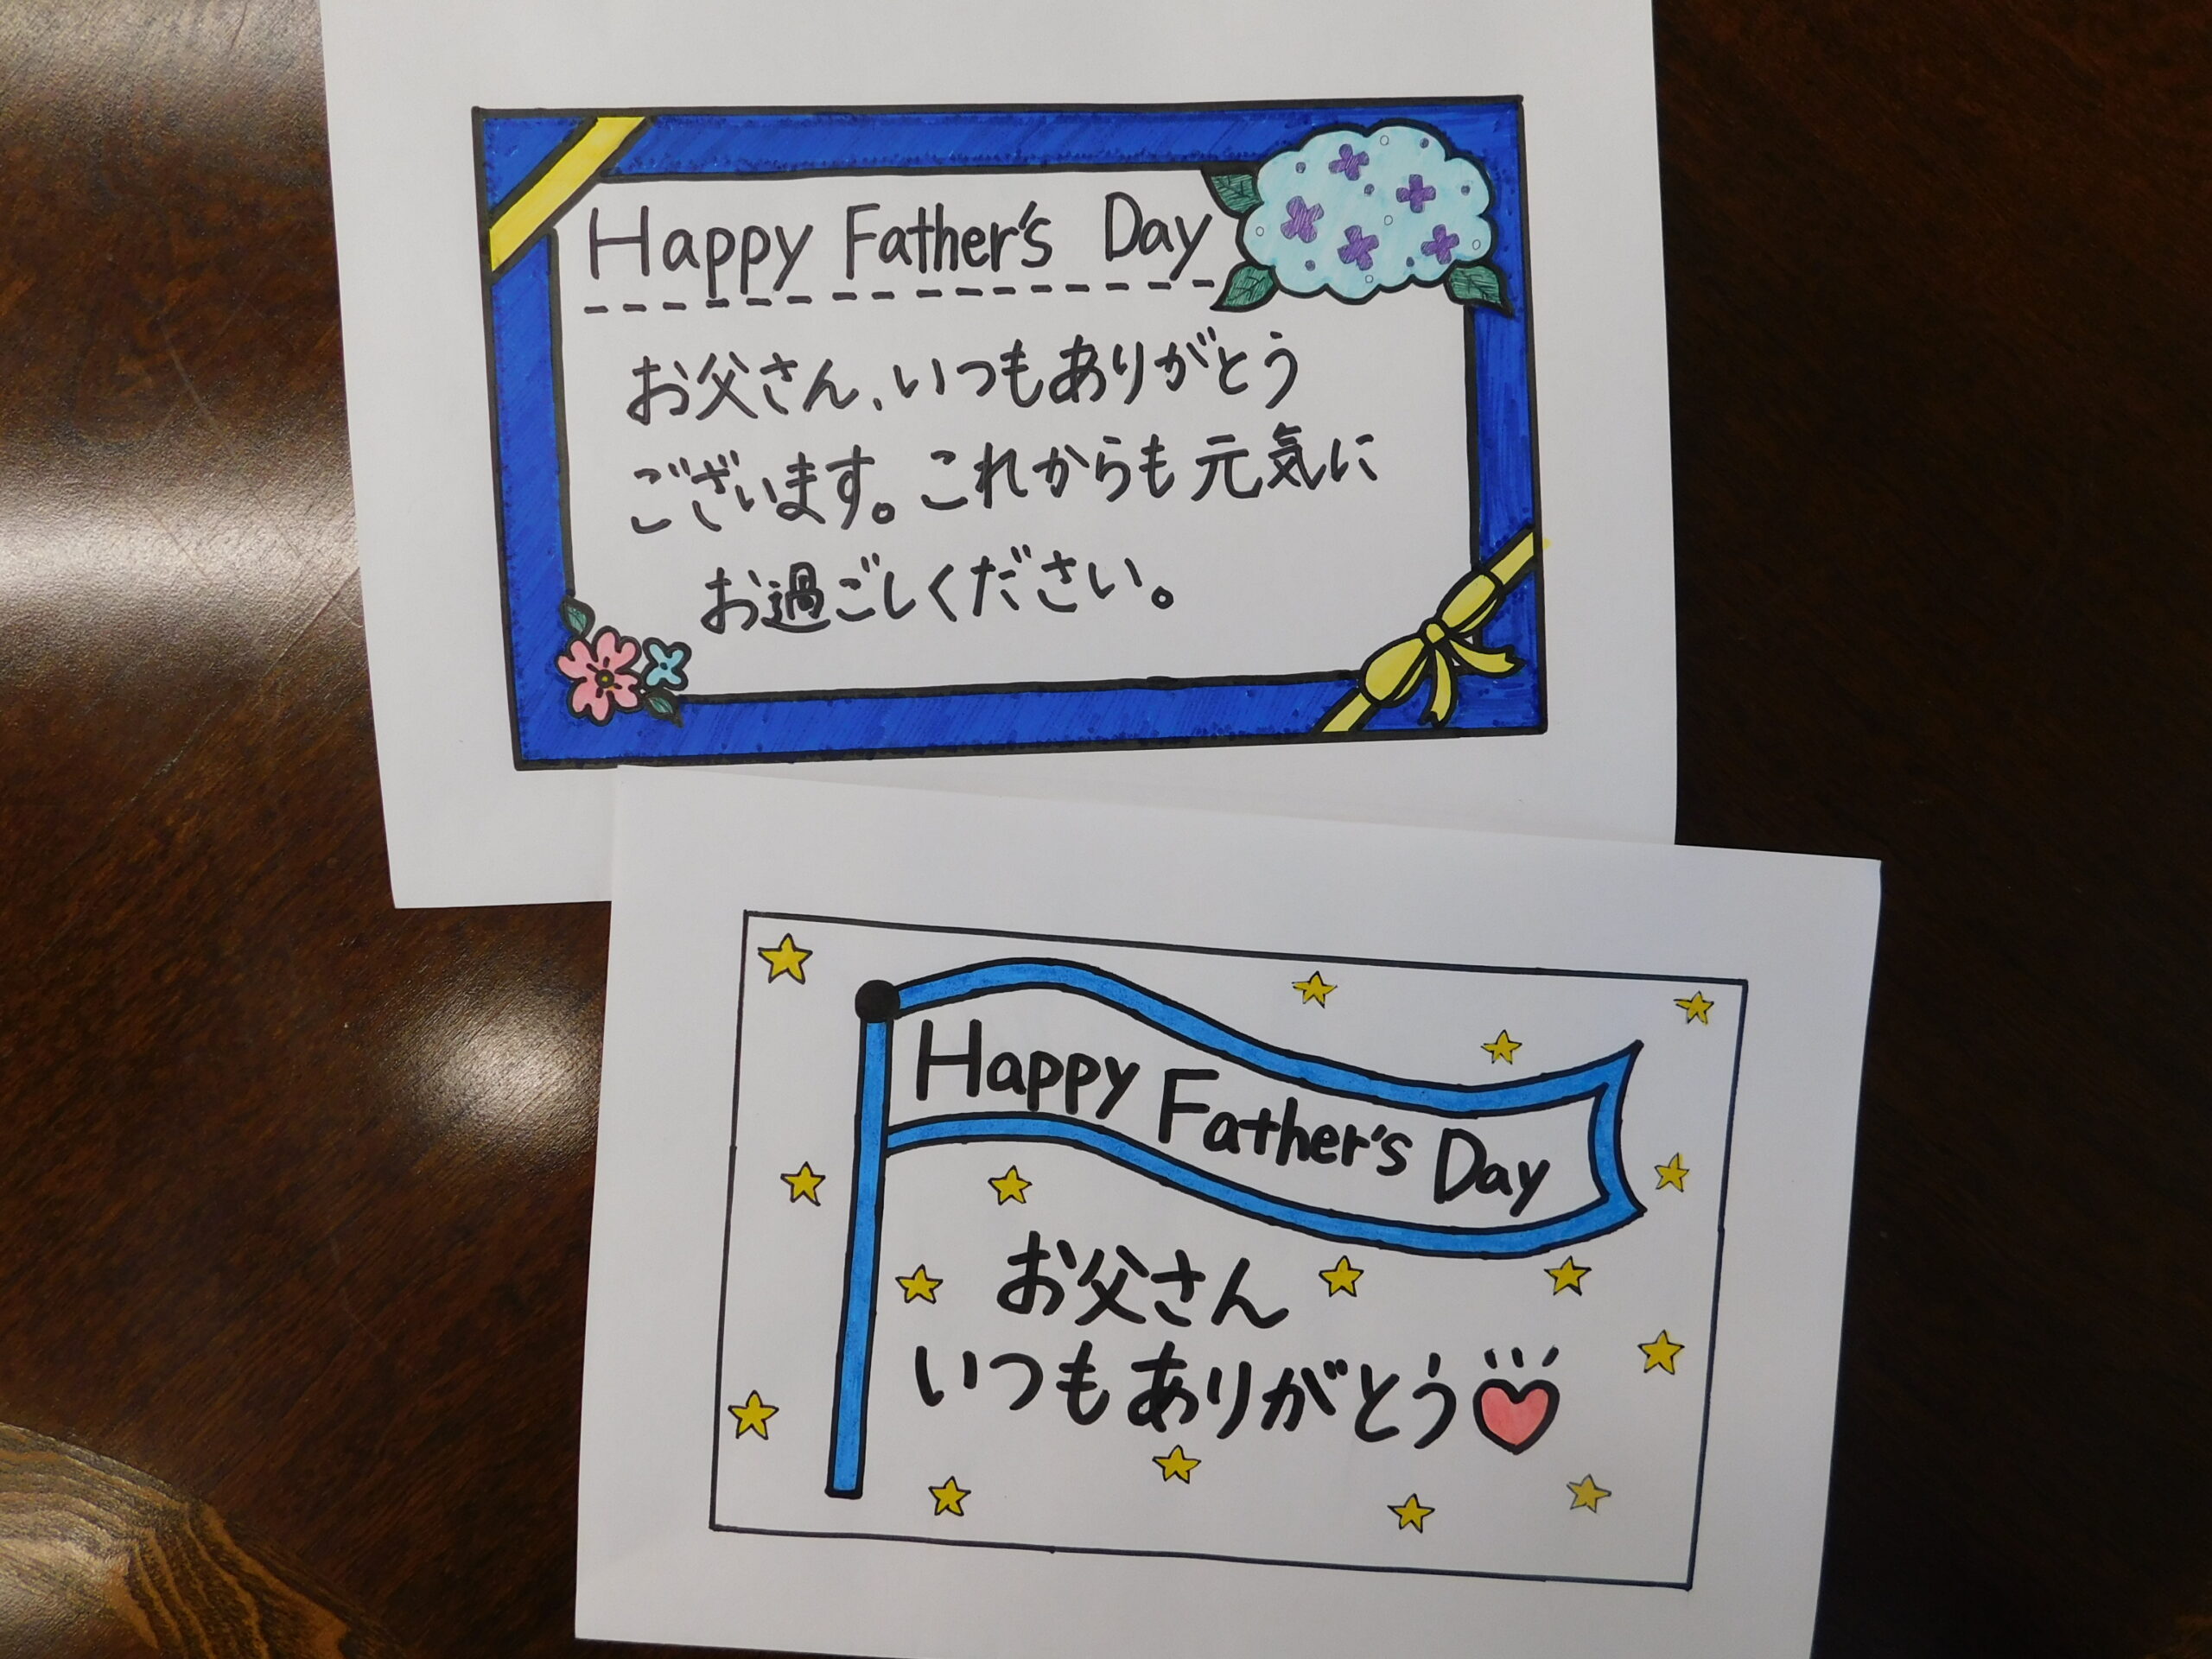 Happy Father's Day
お父さん、いつもありがとう
ございます。これからも元気に
お過ごしください。
Happy Father's Day
お父さん
いつもありがとう